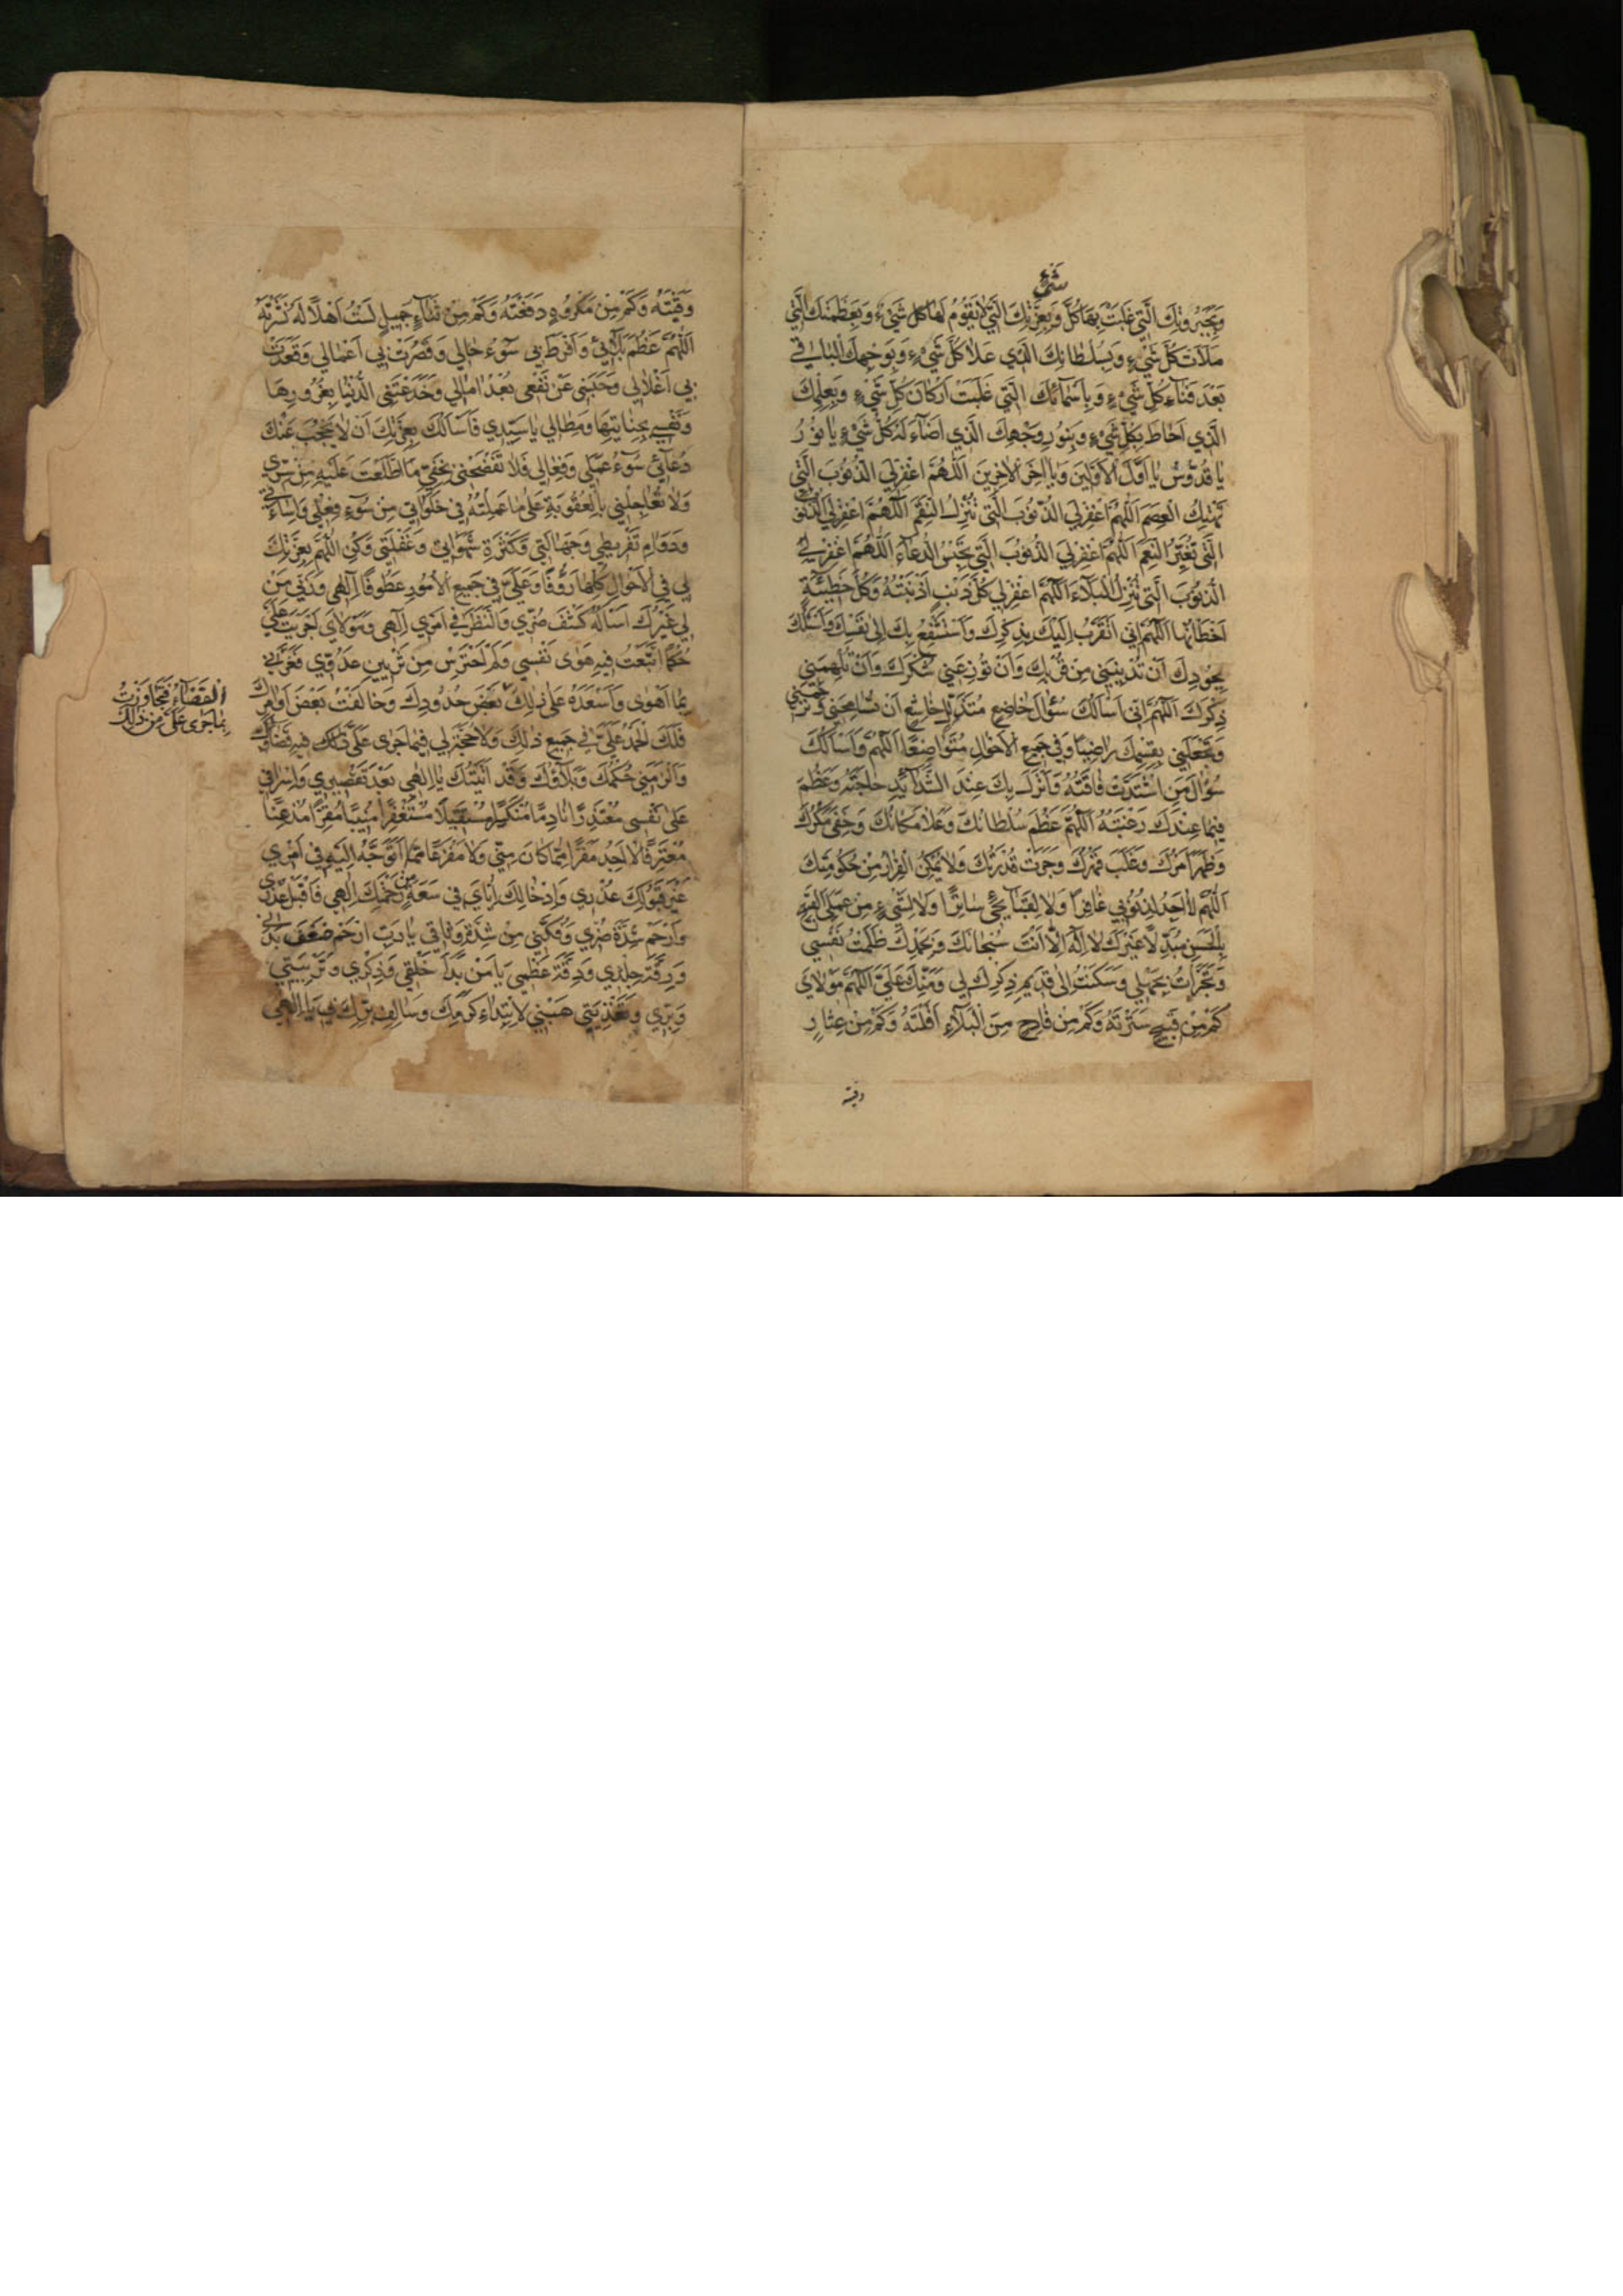 شيء
وَبِجَبَرُوتِكَ الَّتِي غَلَبْتَ بِهَا كُلَّ وَبِعِزَّتِكَ الَّتِي لَا يَقُومُ لَهَا كُلُّ شَيْءٍ وَبِعَظَمَتِكَ الَّتِي
مَلَأَتْ كُلَّ شَيْءٍ وَبِسُلْطَانِكَ الَّذِي عَلَا كُلَّ شَيْءٍ وَبِوَجْهِكَ الْبَاقِي
بَعْدَ فَنَاءِ كُلِّ شَيْءٍ وَبِأَسْمَائِكَ الَّتِي غَلَبَتْ أَرْكَانَ كُلِّ شَيْءٍ وَبِعِلْمِكَ
الَّذِي أَحَاطَ بِكُلِّ شَيْءٍ وَبِنُورِ وَجْهِكَ الَّذِي أَضَاءَ لَهُ كُلُّ شَيْءٍ يَا نُورُ
يَا قُدُّوسُ يَا أَوَّلَ الْأَوَّلِينَ وَيَا آخِرَ الْآخِرِينَ اَللّٰهُمَّ اغْفِرْ لِيَ الذُّنُوبَ الَّتِي
تَهْتِكُ الْعِصَمَ اَللّٰهُمَّ اغْفِرْ لِيَ الذُّنُوبَ الَّتِي تُنْزِلُ النِّقَمَ اَللّٰهُمَّ اغْفِرْ لِيَ الذُّنُوبَ
الَّتِي تُغَيِّرُ النِّعَمَ اَللّٰهُمَّ اغْفِرْ لِيَ الذُّنُوبَ الَّتِي تَحْبِسُ الدُّعَاءَ اَللّٰهُمَّ اغْفِرْ لِيَ
الذُّنُوبَ الَّتِي تُنْزِلُ الْبَلَاءَ اَللّٰهُمَّ اغْفِرْ لِي كُلَّ ذَنْبٍ أَذْنَبْتُهُ وَكُلَّ خَطِيئَةٍ
أَخْطَأْتُهَا اَللّٰهُمَّ إِنِّي أَتَقَرَّبُ إِلَيْكَ بِذِكْرِكَ وَأَسْتَشْفِعُ بِكَ إِلَى نَفْسِكَ وَأَسْئَلُكَ
بِجُودِكَ أَنْ تُدْنِيَنِي مِنْ قُرْبِكَ وَأَنْ تُوزِعَنِي شُكْرَكَ وَأَنْ تُلْهِمَنِي
ذِكْرَكَ اَللّٰهُمَّ إِنِّي أَسْأَلُكَ سُؤَالَ خَاضِعٍ مُتَذَلِّلٍ خَاشِعٍ أَنْ تُسَامِحَنِي وَتَرْحَمَنِي
وَتَجْعَلَنِي بِقِسْمِكَ رَاضِيًا وَفِي جَمِيعِ الْأَحْوَالِ مُتَوَاضِعًا اَللّٰهُمَّ وَأَسْأَلُكَ
سُؤَالَ مَنِ اشْتَدَّتْ فَاقَتُهُ وَأَنْزَلَ بِكَ عِنْدَ الشَّدَائِدِ حَاجَتَهُ وَعَظُمَ
فِيمَا عِنْدَكَ رَغْبَتُهُ اَللّٰهُمَّ عَظُمَ سُلْطَانُكَ وَعَلَا مَكَانُكَ وَخَفِيَ مَكْرُكَ
وَظَهَرَ أَمْرُكَ وَغَلَبَ قَهْرُكَ وَجَرَتْ قُدْرَتُكَ وَلَا يُمْكِنُ الْفِرَارُ مِنْ حُكُومَتِكَ
اَللّٰهُمَّ لَا أَجِدُ لِذُنُوبِي غَافِرًا وَلَا لِقَبَائِحِي سَاتِرًا وَلَا لِشَيْءٍ مِنْ عَمَلِيَ الْقَبِيحِ
بِالْحَسَنِ مُبَدِّلًا غَيْرَكَ لَا إِلٰهَ إِلَّا أَنْتَ سُبْحَانَكَ وَبِحَمْدِكَ ظَلَمْتُ نَفْسِي
وَتَجَرَّأْتُ بِجَهْلِي وَسَكَنْتُ إِلَى قَدِيمِ ذِكْرِكَ لِي وَمَنِّكَ عَلَيَّ اَللّٰهُمَّ مَوْلَايَ
كَمْ مِنْ قَبِيحٍ سَتَرْتَهُ وَكَمْ مِنْ فَادِحٍ مِنَ الْبَلَاءِ أَقَلْتَهُ وَكَمْ مِنْ عِثَارٍ
وقيته
وَقَيْتَهُ وَكَمْ مِنْ مَكْرُوهٍ دَفَعْتَهُ وَكَمْ مِنْ ثَنَاءٍ جَمِيلٍ لَسْتُ أَهْلًا لَهُ نَشَرْتَهُ
اَللّٰهُمَّ عَظُمَ بَلَائِي وَأَفْرَطَ بِي سُوءُ حَالِي وَقَصُرَتْ بِي أَعْمَالِي وَقَعَدَتْ
بِي أَغْلَالِي وَحَبَسَنِي عَنْ نَفْعِي بُعْدُ آمَالِي وَخَدَعَتْنِي الدُّنْيَا بِغُرُورِهَا
وَنَفْسِي بِجِنَايَتِهَا وَمِطَالِي يَا سَيِّدِي فَأَسْأَلُكَ بِعِزَّتِكَ أَنْ لَا يَحْجُبَ عَنْكَ
دُعَائِي سُوءُ عَمَلِي وَفِعَالِي فَلَا تَفْضَحْنِي بِخَفِيِّ مَا اطَّلَعْتَ عَلَيْهِ مِنْ سِرِّي
وَلَا تُعَاجِلْنِي بِالْعُقُوبَةِ عَلَى مَا عَمِلْتُهُ فِي خَلَوَاتِي مِنْ سُوءِ فِعْلِي وَإِسَاءَتِي
وَدَوَامِ تَفْرِيطِي وَجَهَالَتِي وَكَثْرَةِ شَهَوَاتِي وَغَفْلَتِي وَكُنِ اللّٰهُمَّ بِعِزَّتِكَ
لِي فِي الْأَحْوَالِ كُلِّهَا رَؤُوفًا وَعَلَيَّ فِي جَمِيعِ الْأُمُورِ عَطُوفًا إِلٰهِي وَرَبِّي مَنْ
لِي غَيْرُكَ أَسْأَلُهُ كَشْفَ ضُرِّي وَالنَّظَرَ فِي أَمْرِي إِلٰهِي وَمَوْلَايَ أَجْرَيْتَ عَلَيَّ
حُكْمًا اتَّبَعْتُ فِيهِ هَوَى نَفْسِي وَلَمْ أَحْتَرِسْ مِنْ تَزْيِينِ عَدُوِّي فَغَرَّنِي
بِمَا أَهْوَى وَأَسْعَدَهُ عَلَى ذٰلِكَ بَعْضَ حُدُودِكَ وَخَالَفْتُ بَعْضَ أَوَامِرِكَ
اَلْقَضَاءُ فَتَجَاوَزْتُ
بِمَا جَرَى عَلَيَّ مِنْ ذٰلِكَ
فَلَكَ الْحَمْدُ عَلَيَّ فِي جَمِيعِ ذٰلِكَ وَلَا حُجَّةَ لِي فِيمَا جَرَى عَلَيَّ فِيهِ قَضَاؤُكَ
وَأَلْزَمَنِي حُكْمُكَ وَبَلَاؤُكَ وَقَدْ أَتَيْتُكَ يَا إِلٰهِي بَعْدَ تَقْصِيرِي وَإِسْرَافِي
عَلَى نَفْسِي مُعْتَذِرًا نَادِمًا مُنْكَسِرًا مُسْتَقِيلًا مُسْتَغْفِرًا مُنِيبًا مُقِرًّا مُذْعِنًا
مُعْتَرِفًا لَا أَجِدُ مَفَرًّا مِمَّا كَانَ مِنِّي وَلَا مَفْزَعًا أَتَوَجَّهُ إِلَيْهِ فِي أَمْرِي
غَيْرَ قَبُولِكَ عُذْرِي وَإِدْخَالِكَ إِيَّايَ فِي سَعَةٍ مِنْ رَحْمَتِكَ إِلٰهِي فَاقْبَلْ عُذْرِي
وَارْحَمْ شِدَّةَ ضُرِّي وَفُكَّنِي مِنْ شَدِّ وَثَاقِي يَا رَبِّ ارْحَمْ ضَعْفَ بَدَنِي
وَرِقَّةَ جِلْدِي وَدِقَّةَ عَظْمِي يَا مَنْ بَدَأَ خَلْقِي وَذِكْرِي وَتَرْبِيَتِي
وَبِرِّي وَتَغْذِيَتِي هَبْنِي لِابْتِدَاءِ كَرَمِكَ وَسَالِفِ بِرِّكَ بِي يَا إِلٰهِي